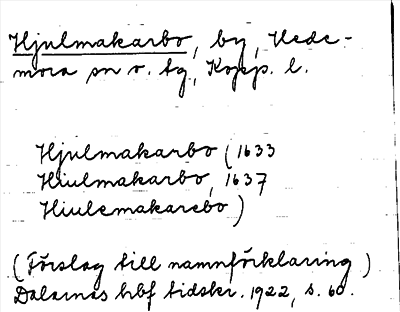 Hjulmakarbo, by, Hede-
mora sn o. tg, Kopp. l.
Hjulmakarbo (1633
Hiulmakarbo, 1637
Hiulemakarebo)
(Förslag till namnförklaring)
Dalarnas hbf tidskr. 1922, s. 60.